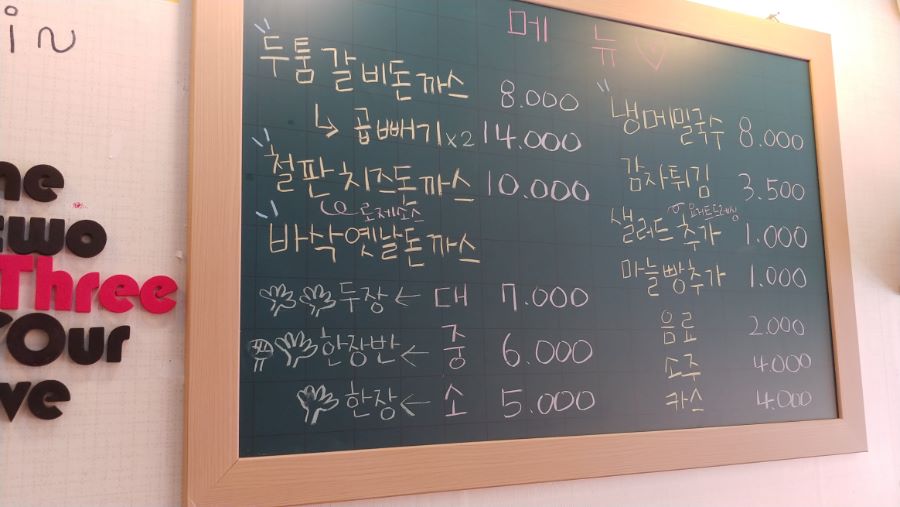 in
ne
two
Three
Our
ve
메 뉴
두툼갈비돈까스 8.000
↳ 곱빼기x2 14.000
철판치즈돈까스 10.000
로제소스
바삭옛날돈까스
두장 ← 대 7.000
한장반 ← 중 6.000
한장 ← 소 5.000
냉메밀국수 8.000
감자튀김 3.500
샐러드추가 1.000
마늘빵추가 1.000
음료 2.000
소주 4.000
카스 4.000